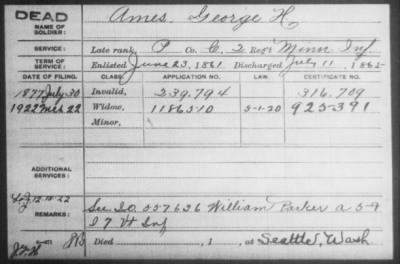 DEAD
NAME OF SOLDIER: Ames, George H.
SERVICE: Late rank, P Co. C, 2 Reg't Minn Inf
TERM OF SERVICE: Enlisted June 23, 1861 Discharged July 11, 1865
DATE OF FILING. CLASS. APPLICATION NO. LAW. CERTIFICATE NO.
1877 July 30 Invalid, 239.794 316.709
1922 22 Widow, 1186510 5-1-20 925-391
Minor,
ADDITIONAL SERVICES:
12-18-22
REMARKS: See 557636 William Parker a
17 Vt Inf
Died , 1 , at Seattle, Wash